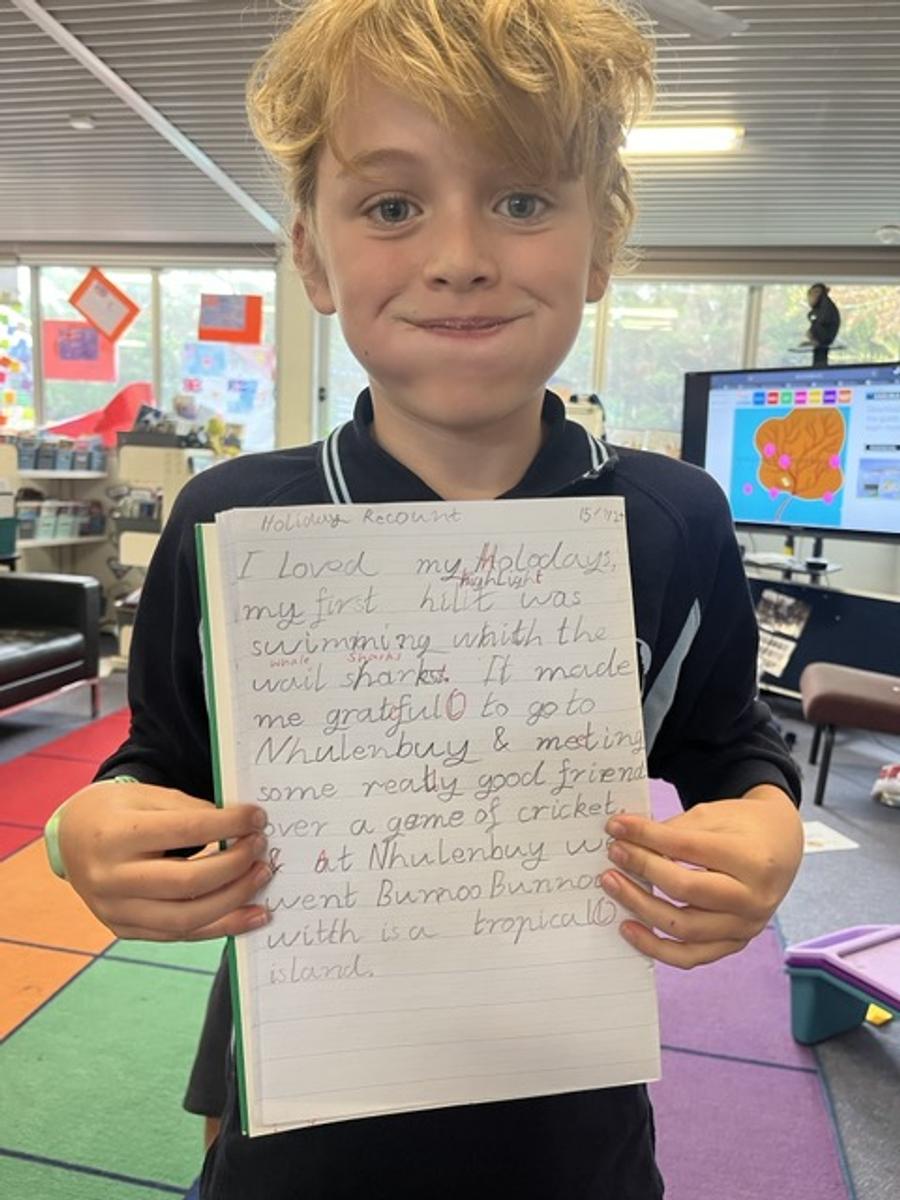 Holiday Recount 15/7/24
I Loved my Holodays,
highlight
my first hilit was
swimming whith the
whale sharks
wail sharks. It made
me grateful to go to
Nhulenbuy & meeting
some really good friend
over a game of cricket.
& At Nhulenbuy we
went Bumoo Bunnoo
witth is a tropical
island.